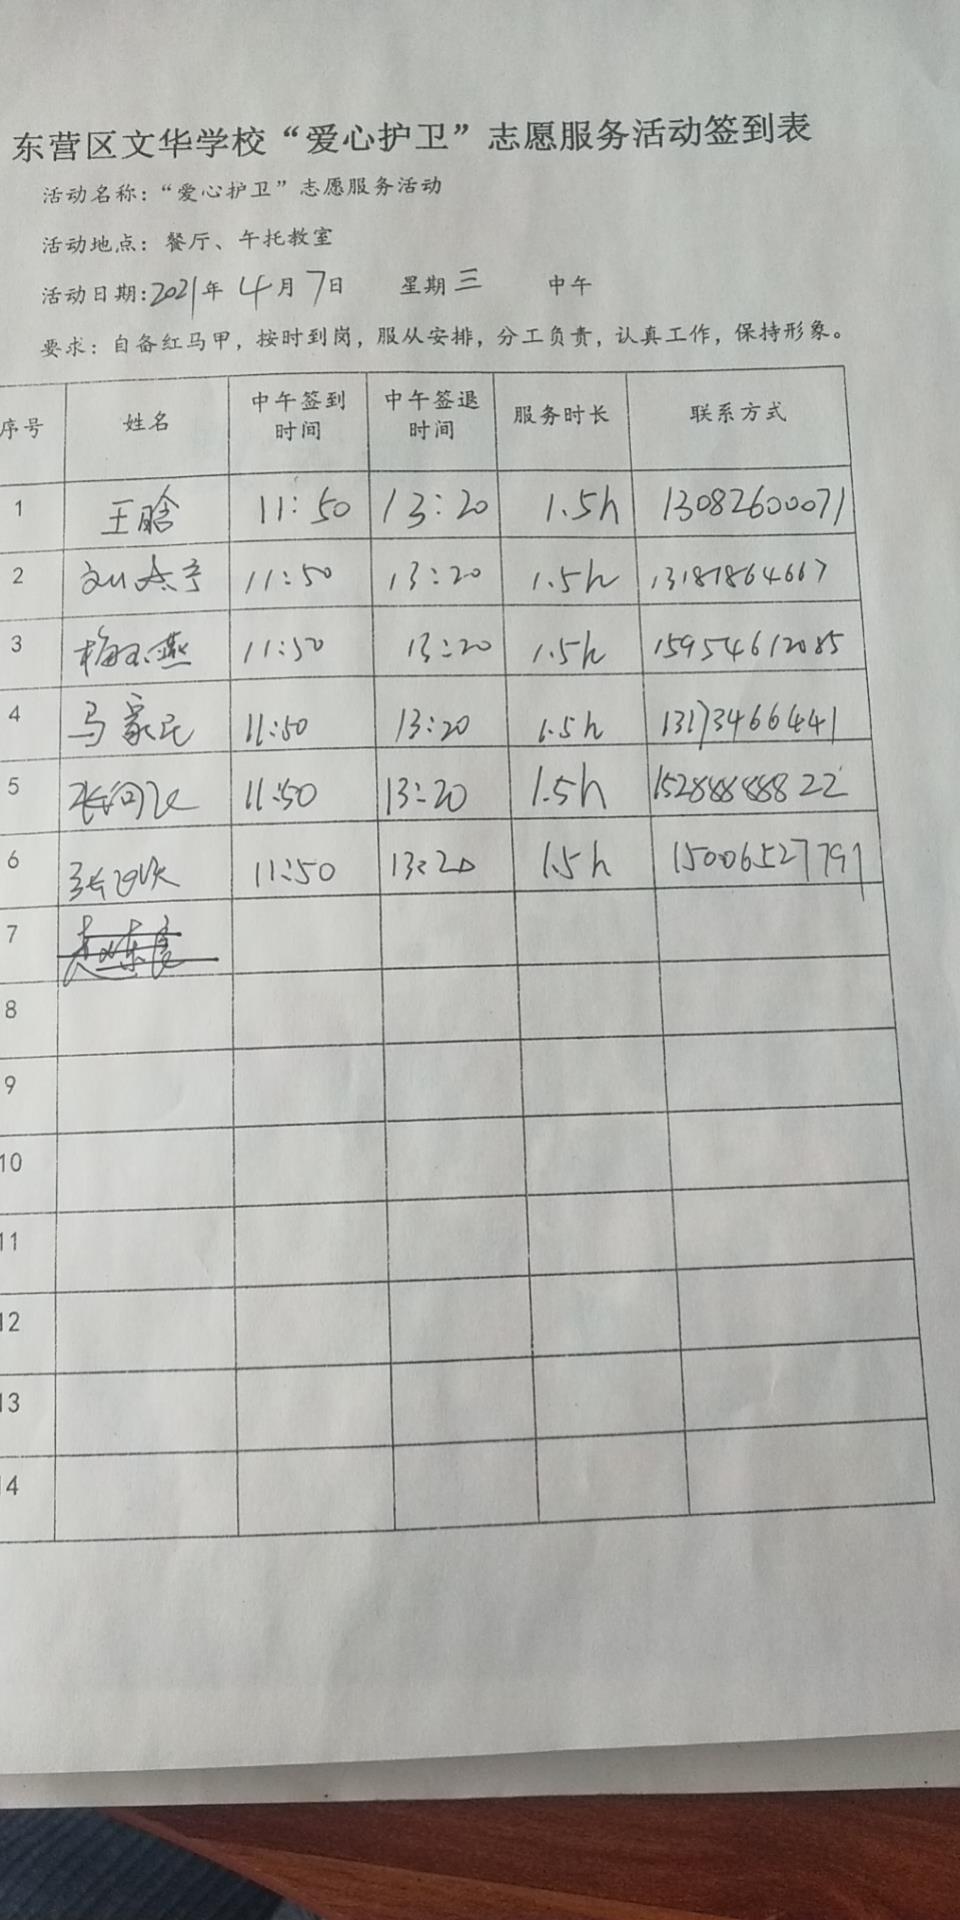 东营区文华学校“爱心护卫”志愿服务活动签到表
活动名称：“爱心护卫”志愿服务活动
活动地点：餐厅、午托教室
活动日期:2021年 4月7日 星期三 中午
要求：自备红马甲，按时到岗，服从安排，分工负责，认真工作，保持形象。
序号 姓名 中午签到时间 中午签退时间 服务时长 联系方式
1 王晗 11:50 13:20 1.5h 13082600071
2 11:50 13:20 1.5h 13181864667
3 梅玉燕 11:50 13:20 1.5h 15954612085
4 马家民 11:50 13:20 1.5h 13173466441
5 11:50 13:20 1.5h 15288888822
6 11:50 13:20 1.5h 15006527797
7
8
9
10
11
12
13
14